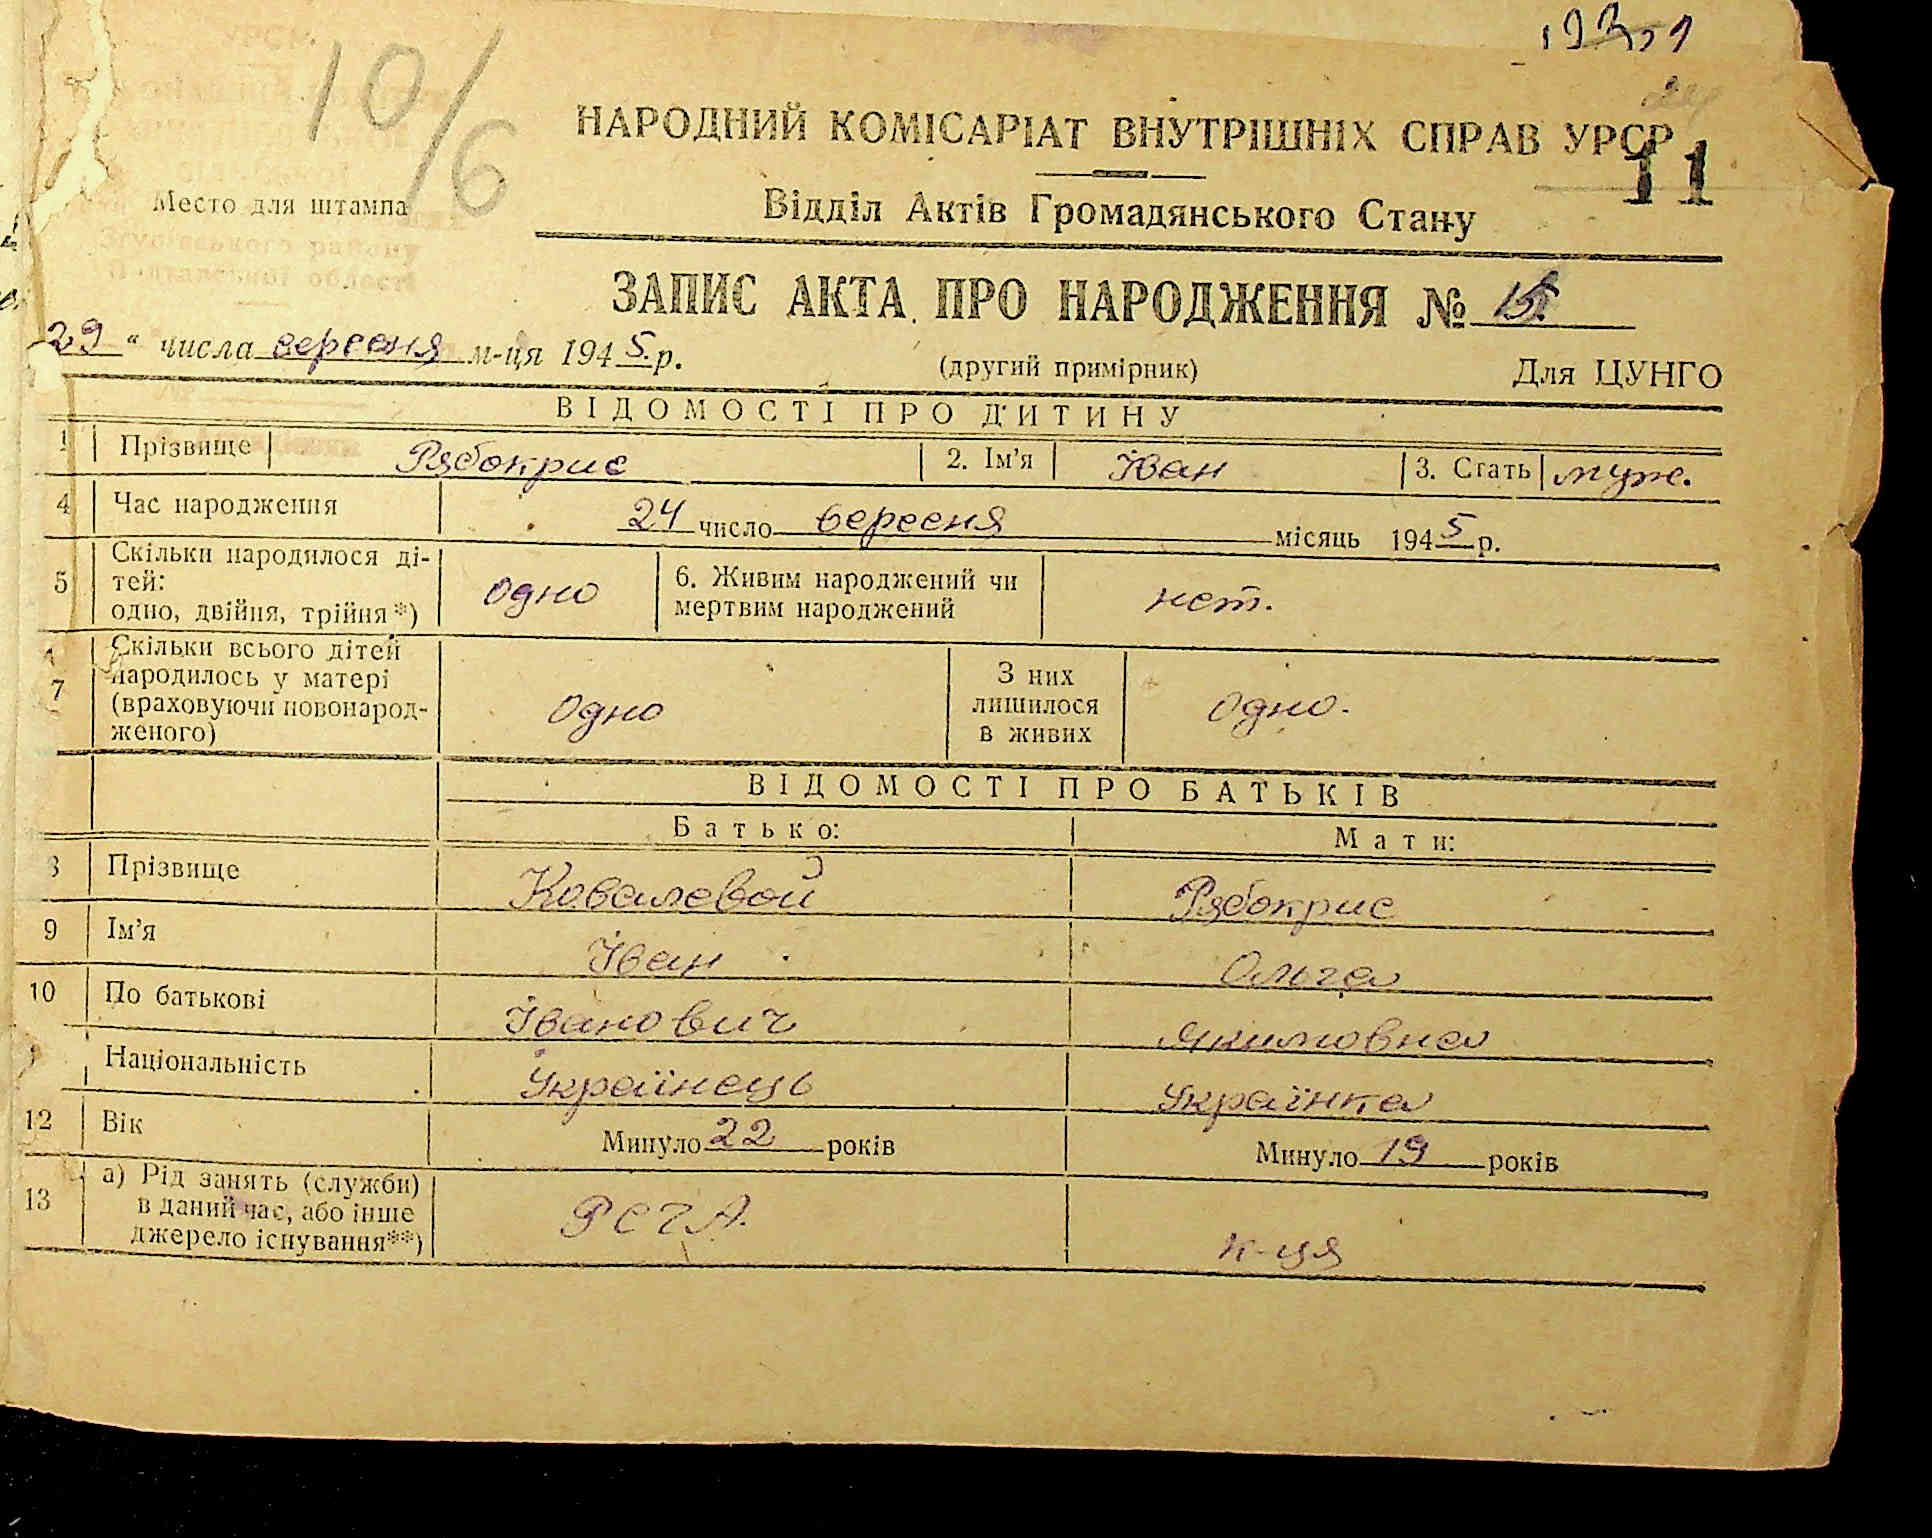 10/6
11
НАРОДНИЙ КОМІСАРІАТ ВНУТРІШНІХ СПРАВ УРСР
Место для штампа
Відділ Актів Громадянського Стану
Згурівського району
Полтавської області
ЗАПИС АКТА ПРО НАРОДЖЕННЯ № 15
29 " числа вересня м-ця 1945 р.
(другий примірник) Для ЦУНГО
ВІДОМОСТІ ПРО ДИТИНУ
1 Прізвище Рябокрис 2. Ім'я Іван 3. Стать муж.
4 Час народження 24 число вересня місяць 1945 р.
5 Скільки народилося ді-
тей:
одно, двійня, трійня*) одно
6. Живим народжений чи
мертвим народжений нет.
7 Скільки всього дітей
народилось у матері
(враховуючи новонарод-
женого) одно
З них
лишилося
в живих одно.
ВІДОМОСТІ ПРО БАТЬКІВ
Батько: Мати:
8 Прізвище Ковалевой Рябокрис
9 Ім'я Іван Ольга
10 По батькові Іванович Якимовна
Національність Українець Українка
12 Вік Минуло 22 років Минуло 19 років
13 а) Рід занять (служби)
в даний час, або інше
джерело існування**) РСЧА. к-ця